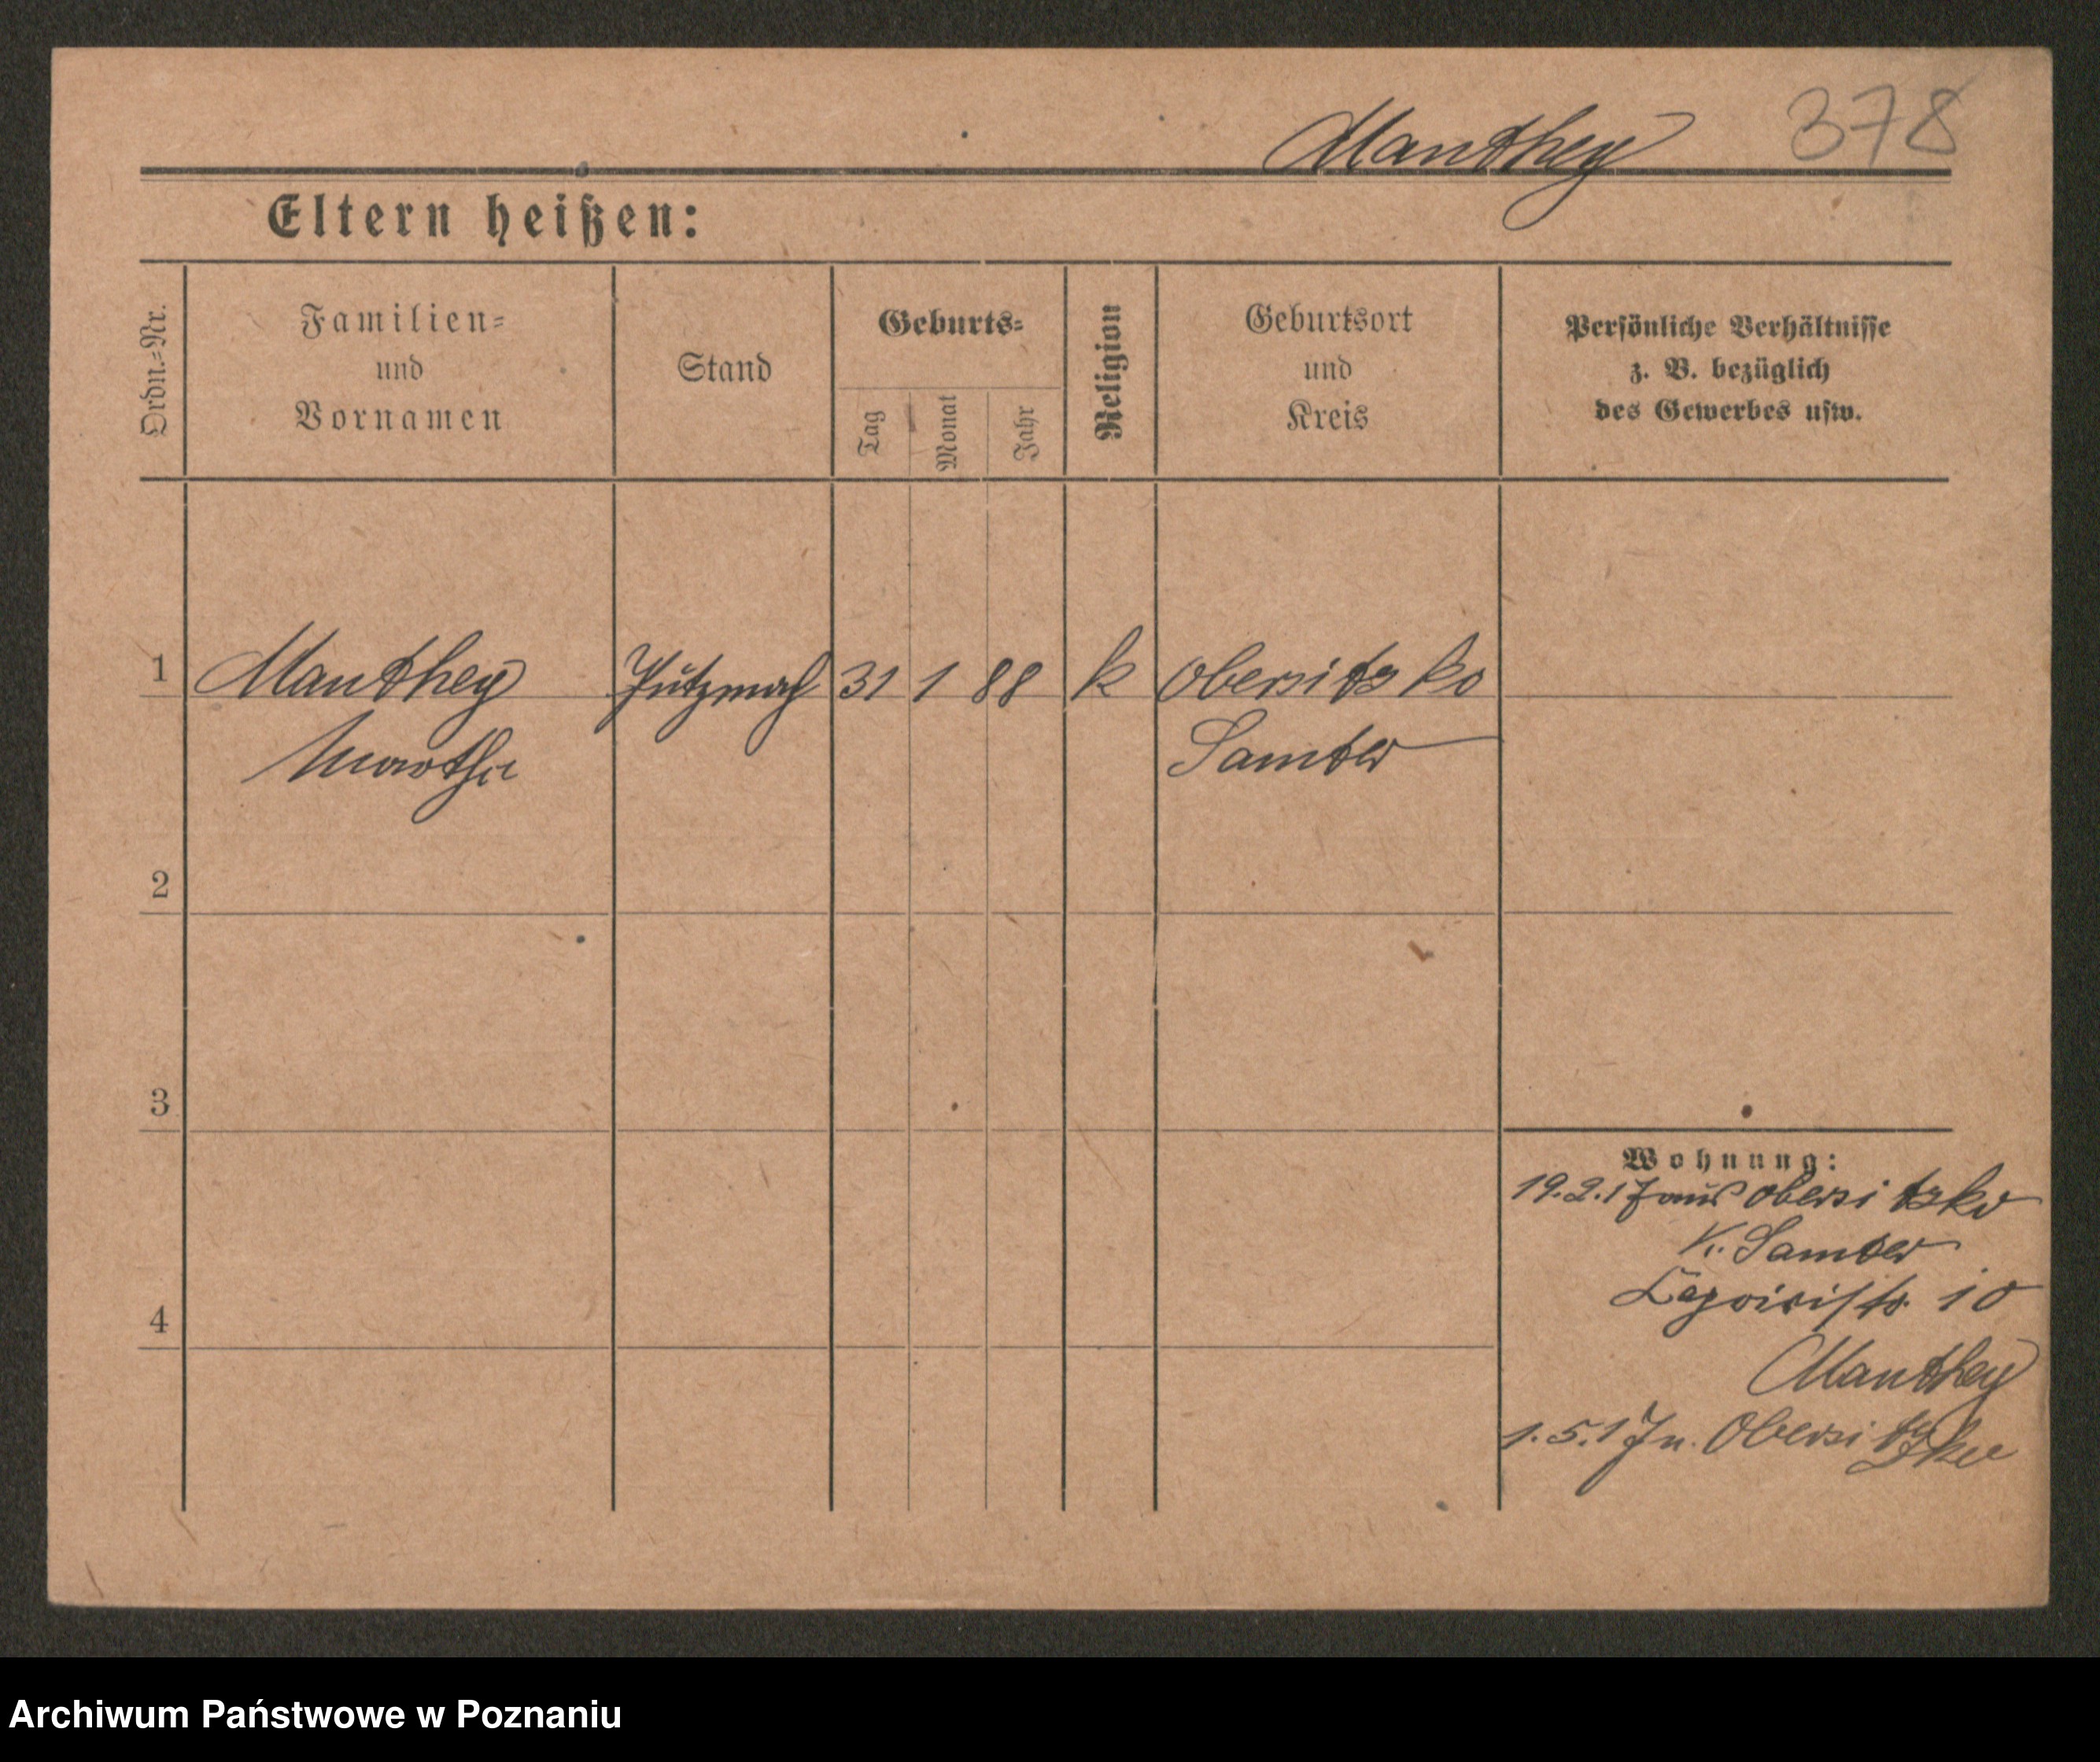 Manthey 378
Eltern heißen:
Ordn.=Nr.
Familien=
und
Vornamen
Stand
Geburts=
Tag
Monat
Jahr
Religion
Geburtsort
und
Kreis
Persönliche Verhältnisse
z. B. bezüglich
des Gewerbes usw.
1 Manthey Putzmach 31 1 88 k Obersitzko
Martha Samter
2
3
4
Wohnung:
19.2.17 aus Obersitzko
K. Samter
10
Manthey
1.5.17 n. Obersitzko
Archiwum Państwowe w Poznaniu